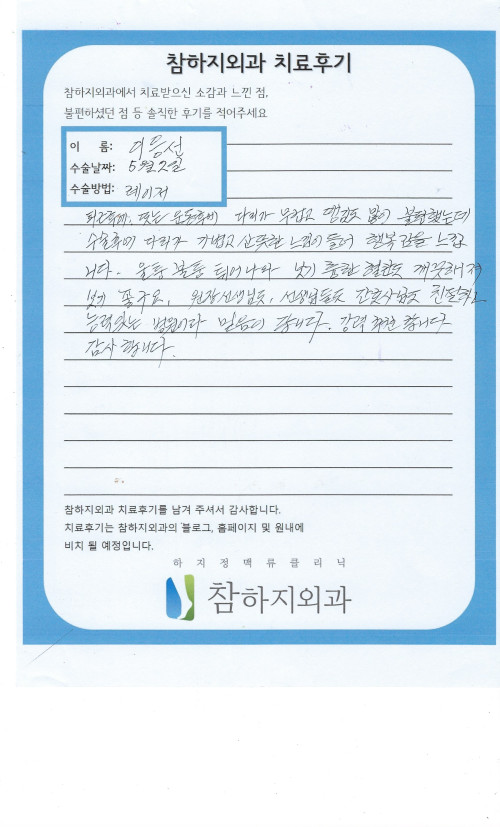 참하지외과 치료후기
참하지외과에서 치료받으신 소감과 느낀 점,
불편하셨던 점 등 솔직한 후기를 적어주세요
이 름: 이동선
수술날짜: 5월 2일
수술방법: 레이저
퇴근후에, 또는 운동후에 다리가 무겁고 땡김도 많이 불편했는데
수술후에 다리가 가볍고 산뜻한 느낌이 들어 행복감을 느낍
니다. 울퉁 불퉁 튀어나와 보기 흉한 혈관도 깨끗해져
보기 좋구요, 원장선생님도, 선생님들도 간호사님도 친절하고
능력있는 병원이라 믿음이 갑니다. 강력 추천 합니다
감사 합니다.
참하지외과 치료후기를 남겨 주셔서 감사합니다.
치료후기는 참하지외과의 블로그, 홈페이지 및 원내에
비치 될 예정입니다.
하지정맥류클리닉
참하지외과